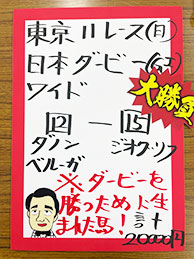 東京11レース(月)
日本ダービー
ワイド
大勝負
12 — 15
ダノン ジオグリフ
ベルーガ
※ダービーを
勝つために生
まれた馬! 計
20000円